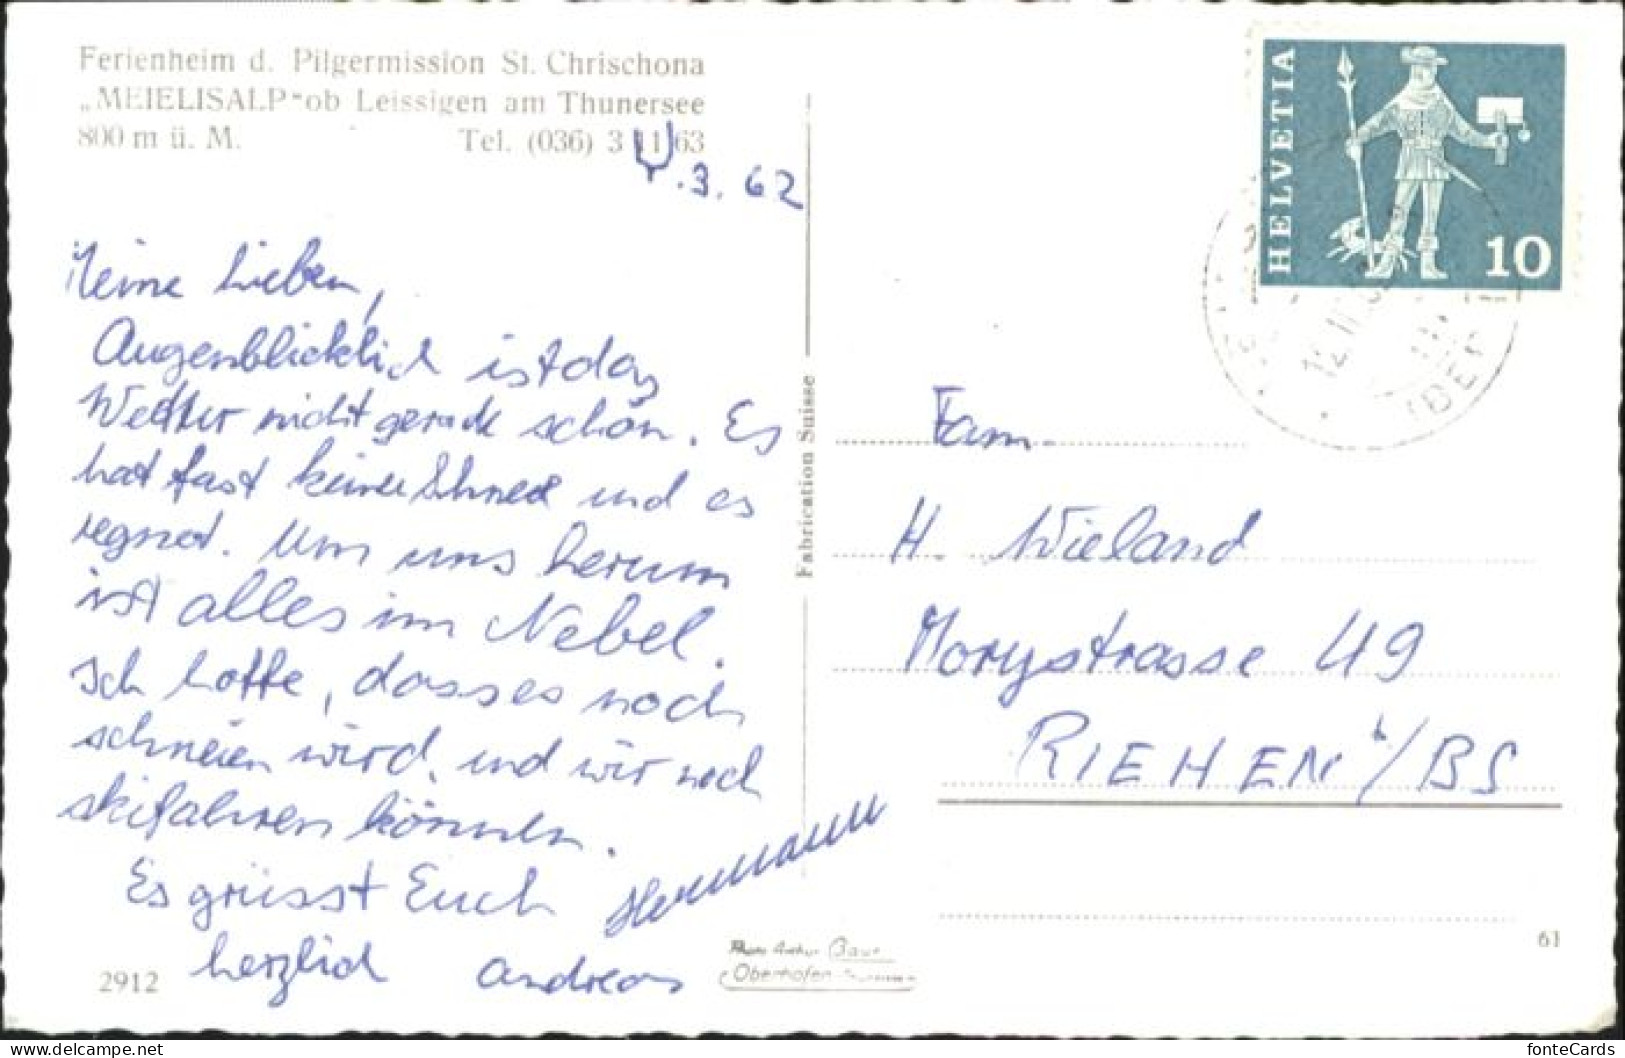 Ferienheim d. Pilgermission St. Chrischona
„MEIELISALP“ ob Leissigen am Thunersee
800 m ü. M. Tel. (036) 3 11 63
4.3.62
Meine Lieben,
Augenblicklich ist das
Wetter nicht gerade schön. Es
hat fast keinen Schnee und es
regnet. Um uns herum
ist alles im Nebel.
Ich hoffe, dass es noch
schneien wird, und wir noch
skifahren können.
Es grüsst Euch
herzlich Andreas
Hermann
2912
Photo Arthur Baur
Oberhofen
Fabrication Suisse
HELVETIA
10
Fam.
H. Wieland
Morystrasse 49
RIEHEN b/BS
61
fonteCards
www.delcampe.net